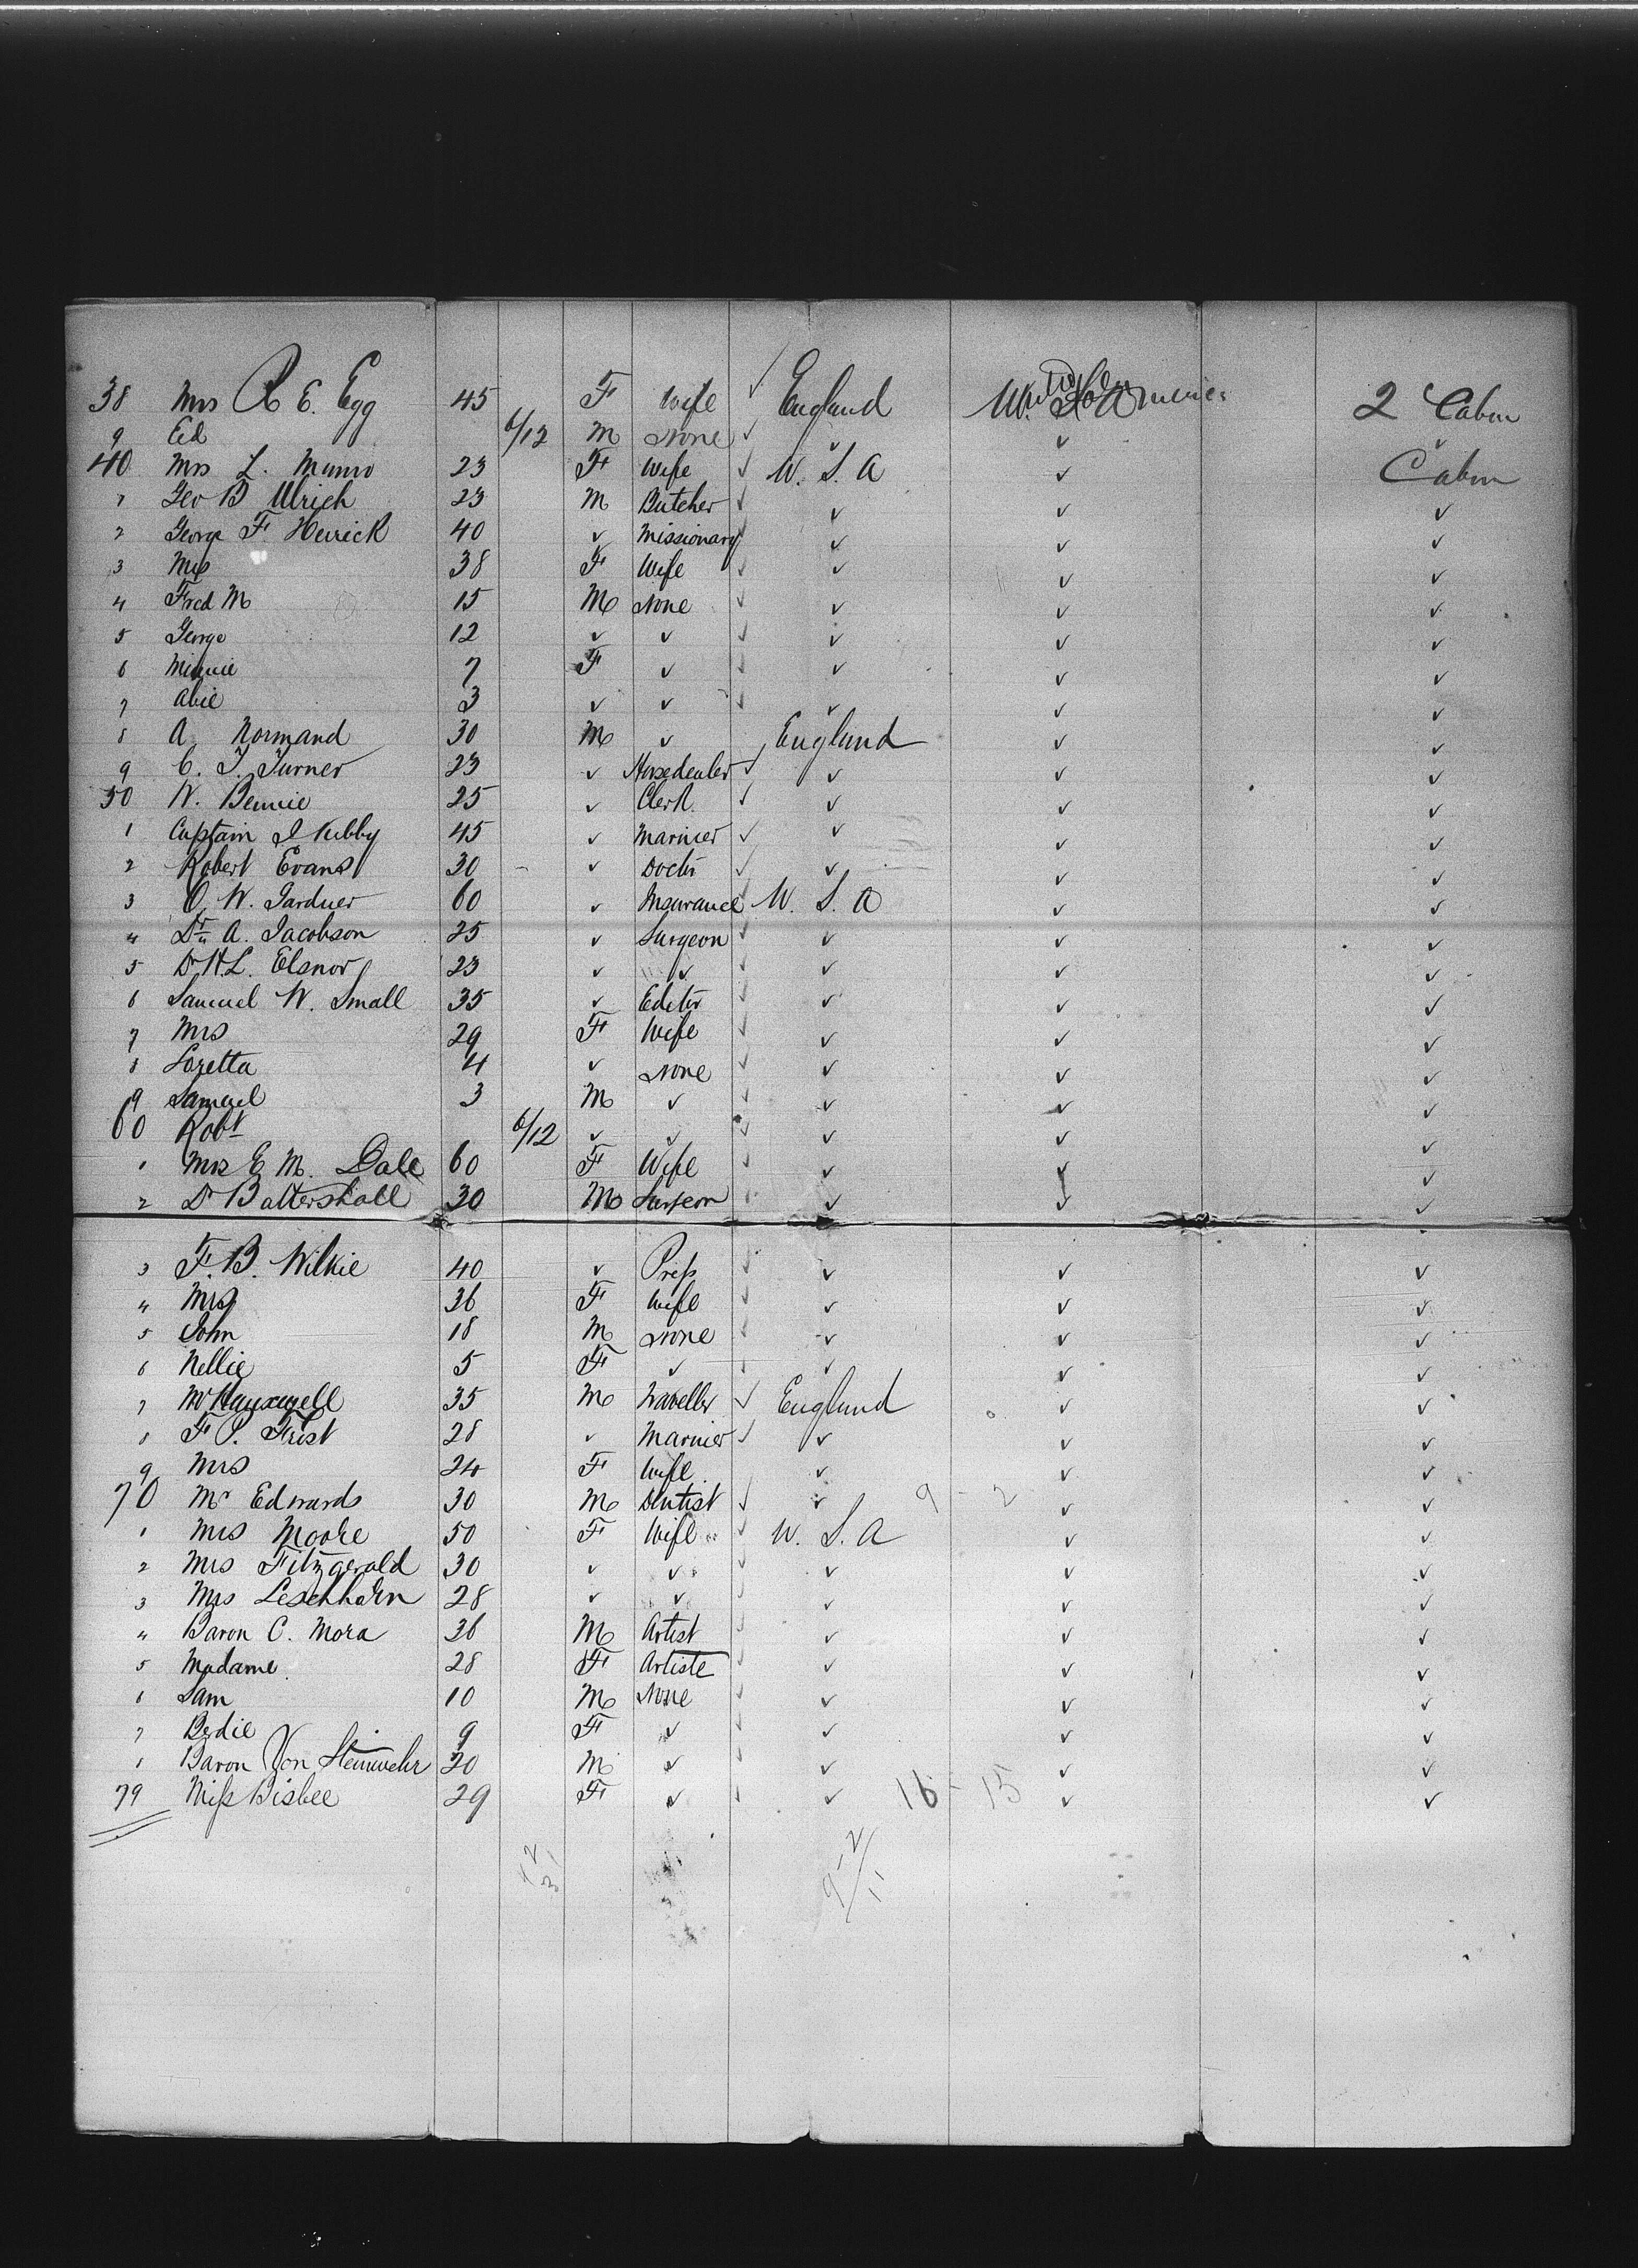 38 Mrs R E. Egg 45 F Wife ✓ England U. S. America 2 Cabin
9 Ed 6/12 M None ✓ ✓ ✓ ✓
40 Mrs L. Munro 23 F Wife ✓ U. S. A ✓ Cabin
1 Geo B Ulrich 23 M Butcher ✓ ✓ ✓ ✓
2 George F. Herrick 40 ✓ Missionary ✓ ✓ ✓ ✓
3 Mrs 38 F Wife ✓ ✓ ✓ ✓
4 Fred M 15 M None ✓ ✓ ✓ ✓
5 George 12 ✓ ✓ ✓ ✓ ✓ ✓
6 Minnie 7 F ✓ ✓ ✓ ✓ ✓
7 Abie 3 ✓ ✓ ✓ ✓ ✓ ✓
8 A Normand 30 M ✓ England ✓ ✓
9 C. T. Turner 23 ✓ Horsedealer ✓ ✓ ✓ ✓
50 W. Bennie 25 ✓ Clerk ✓ ✓ ✓ ✓
1 Captain 45 ✓ Mariner ✓ ✓ ✓ ✓
2 Robert Evans 30 ✓ Doctor ✓ ✓ ✓ ✓
3 O. W. Gardner 60 ✓ Insurance U. S. A ✓ ✓
4 Dr A. Jacobson 25 ✓ Surgeon ✓ ✓ ✓ ✓
5 Dr H. L. Elsnor 23 ✓ ✓ ✓ ✓ ✓ ✓
6 Samuel W. Small 35 ✓ Editor ✓ ✓ ✓ ✓
7 Mrs 29 F Wife ✓ ✓ ✓ ✓
8 Loretta 4 ✓ None ✓ ✓ ✓ ✓
9 Samuel 3 M ✓ ✓ ✓ ✓ ✓
60 Robt 6/12 ✓ ✓ ✓ ✓ ✓ ✓
1 Mrs E M. Dale 60 F Wife ✓ ✓ ✓ ✓
2 Dr Battershall 30 M Surgeon ✓ ✓ ✓
3 F. B. Wilkie 40 ✓ Press ✓ ✓ ✓ ✓
4 Mrs 36 F Wife ✓ ✓ ✓ ✓
5 John 18 M None ✓ ✓ ✓ ✓
6 Nellie 5 F ✓ ✓ ✓ ✓ ✓
7 Mr 35 M Traveller ✓ England ✓ ✓
8 F P. 28 ✓ Mariner ✓ ✓ ✓ ✓
9 Mrs 24 F Wife ✓ ✓ ✓
70 Mr Edwards 30 M Dentist ✓ ✓ 9 - 2 ✓ ✓
1 Mrs Moore 50 F Wife ✓ U. S. A ✓ ✓
2 Mrs Fitzgerald 30 ✓ ✓ ✓ ✓ ✓ ✓
3 Mrs Leschhorn 28 ✓ ✓ ✓ ✓ ✓ ✓
4 Baron C. Mora 36 M Artist ✓ ✓ ✓ ✓
5 Madame 28 F Artiste ✓ ✓ ✓ ✓
6 Sam 10 M None ✓ ✓ ✓ ✓
7 Berdie 9 F ✓ ✓ ✓ ✓ ✓
8 Baron Von Steinwehr 20 M ✓ ✓ ✓ ✓ ✓
79 Miss Bisbee 29 F ✓ ✓ ✓ 16 - 15 ✓ ✓
9-2/11